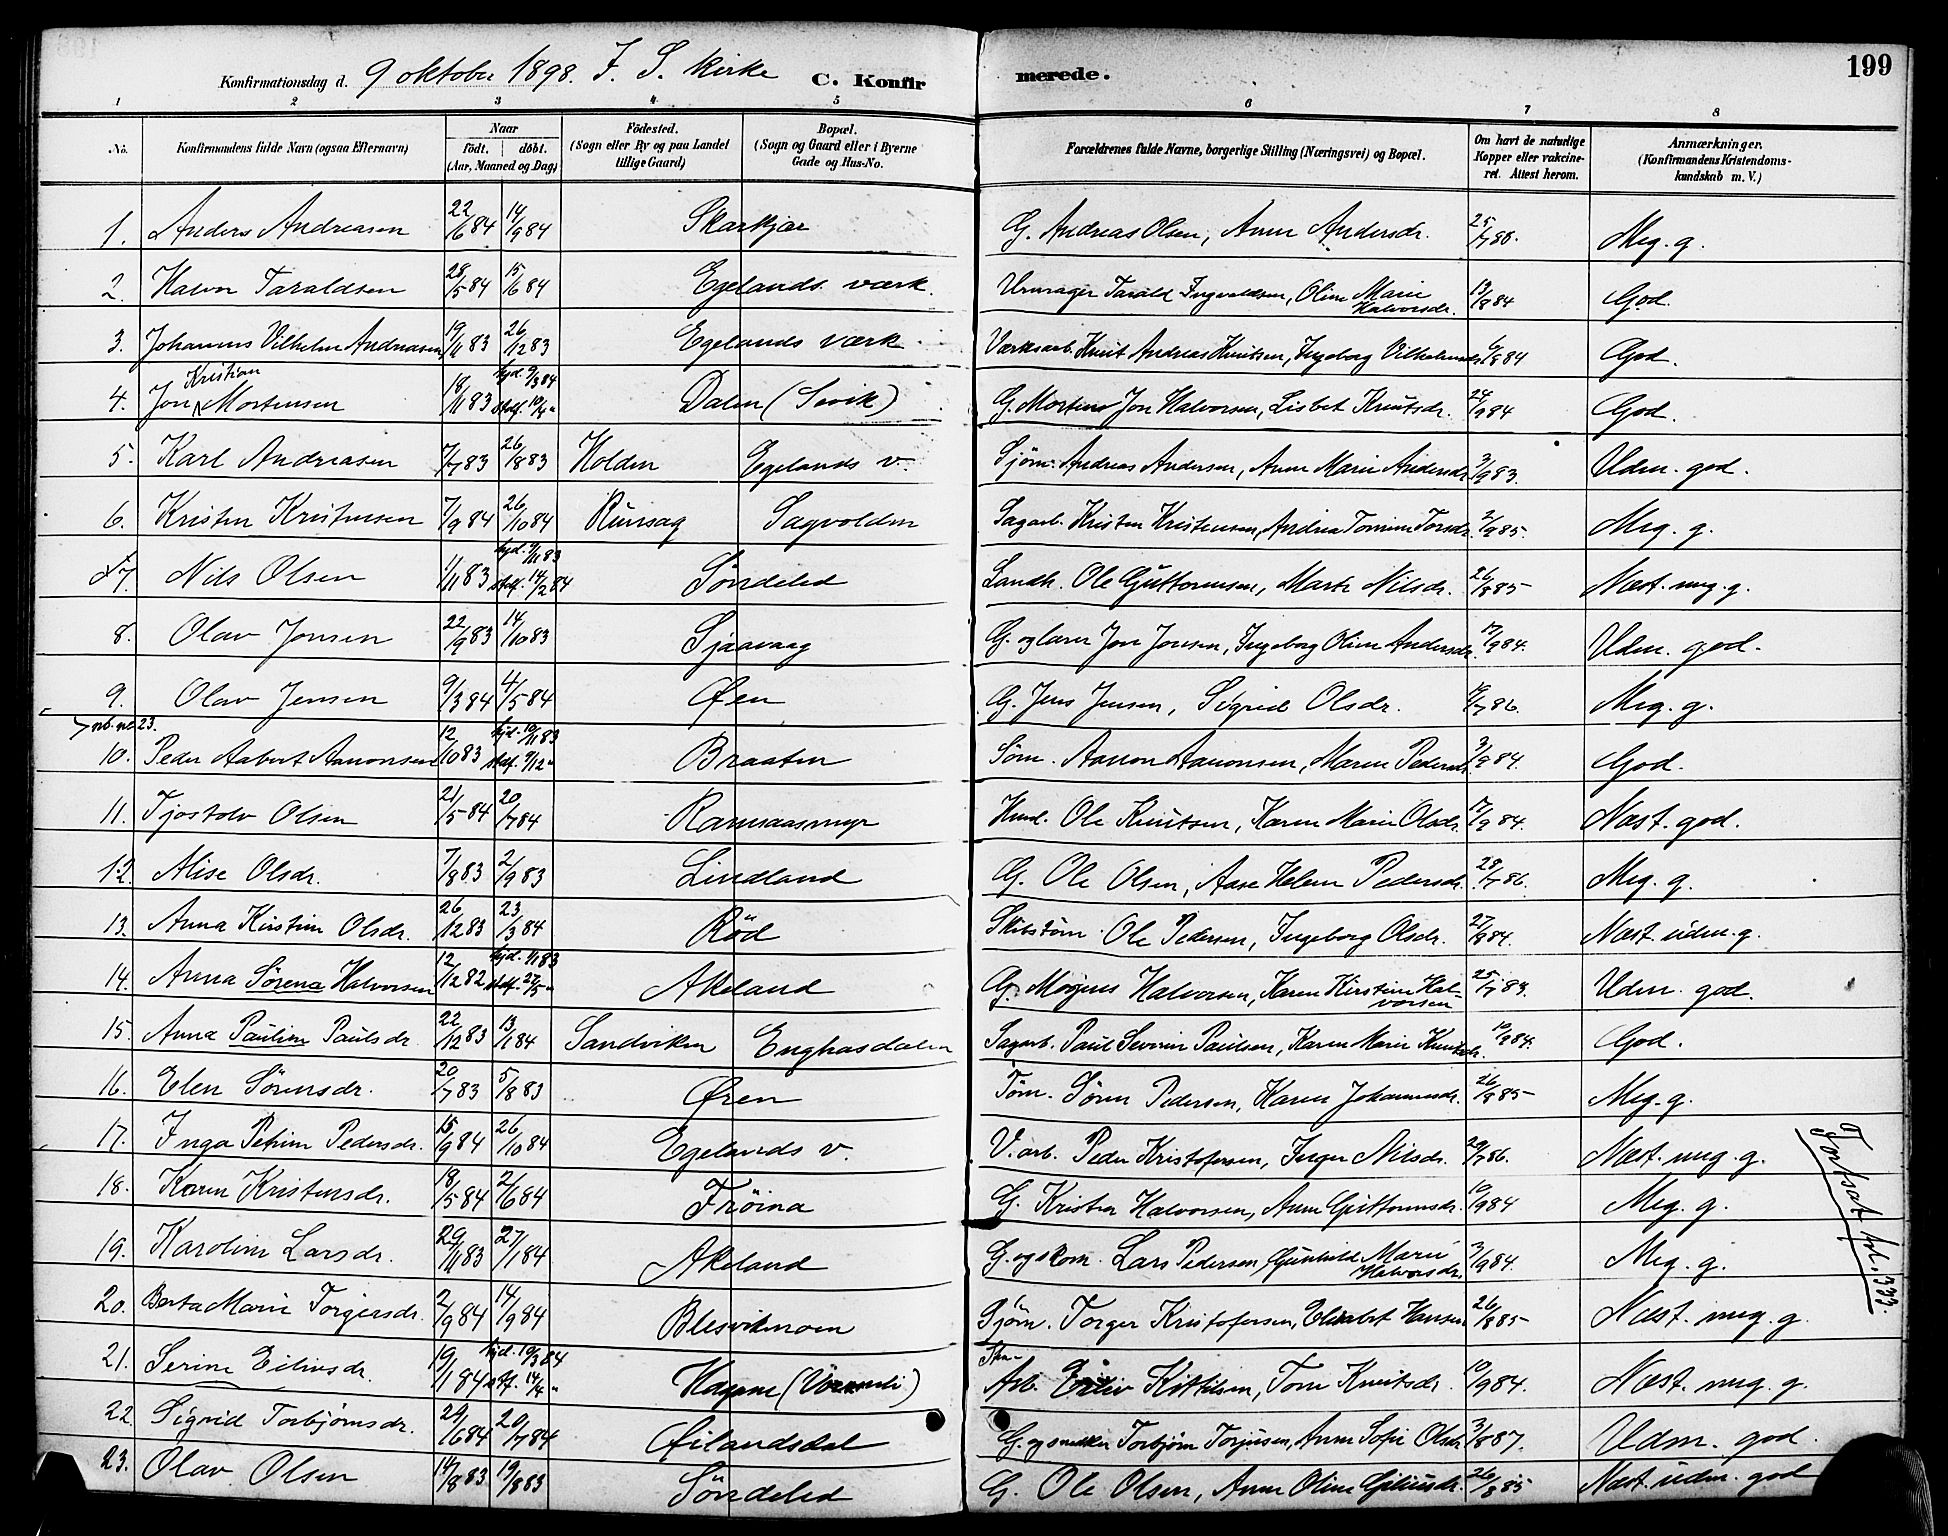 199
Konfirmationsdag d. 9 oktober 1898. I. S. kirke C. Konfirmerede.
1 2 3 4 5 6 7 8
No. Konfirmandens fulde Navn (ogsaa Efternavn) Naar født. døbt. (Aar, Maaned og Dag) Fødested. (Sogn eller By og paa Landet tillige Gaard) Bopæl. (Sogn og Gaard eller i Byerne Gade og Hus-No. Forældrenes fulde Navne, borgerlige Stilling (Næringsvei) og Bopæl. Om havt de naturlige Kopper eller vakcineret. Attest herom. Anmærkninger. (Konfirmandens Kristendomskundskab m. V.)
1. Anders Andreasen 22/6 84 14/9 84 Skarkjær G. Andreas Olsen, Anne Andersdr. 25/7 88. Meg. g.
2. Halvor Taraldsen 28/5 84 15/6 84 Egelands værk. Urmager Tarald Ingvaldsen, Oline Marie Halvorsdr. 13/8 84 God.
3. Johannes Vilhelm Andreasen 19/11 83 26/12 83 Egelands værk Værksarb. Knut Andreas Knutsen, Ingeborg Vilhelmsdr. 6/8 84 God.
4. Jon Kristian Mortensen 18/11 83 hjd. 9/3 84 stadf. 10/4 " Dalen (Sivik) G. Morten Jon Halvorsen, Lisbet Knutsdr. 24/9 84 God.
5. Karl Andreasen 7/7 83 26/8 83 Holden Egelands v. Sjøm. Andreas Andersen, Anne Marie Andersdr. 3/9 83. Udm. god.
6. Kristen Kristensen 7/9 84 26/10 84 Runsag Sagvolden Sagarb. Kristen Kristensen, Andrea Tomine Torsdr. 2/9 85. Meg. g.
7. Nils Olsen 1/11 83 hjd. 9/11 83 stadf. 14/2 84 Søndeled Landh. Ole Guttormsen, Marte Nilsdr. 26/8 85 Næst. meg. g.
8. Olav Jonsen 22/9 83 14/10 83 Sjaavaag G. og lærer Jon Jonsen, Ingeborg Oline Andersdr. 17/9 84. Udm. god.
9. Olav Jensen 9/3 84 4/5 84 Øen G. Jens Jensen, Sigrid Olsdr. 7 86. Meg. g.
nb. no. 23.
10. Peder Aabert Aanonsen 12/10 83 hjd. 10/11 83 stadf. 9/12 " Braaten Søm. Aanon Aanonsen, Maren Pedersdr. 3/9 84. God.
11. Tjostolv Olsen 21/5 84 20/7 84 Ramsaasmyr Husm. Ole Knutsen, Karen Marie Olsdr. 17/9 84. Næst. god.
12. Alise Olsdr. 7/8 83 2/9 83 Lindland G. Ole Olsen, Aase Helene Pedersdr. 28/7 86. Meg. g.
13. Anna Kirstine Olsdr. 26/12 83 23/3 84 Rød Skibstøm. Ole Pedersen, Ingeborg Olsdr. 27/8 84. Næst. udm. g.
14. Anna Sørena Halvorsen 12/12 82 hjd. 1/1 83 stadf. 27/5 " Akeland G. Mogens Halvorsen, Karen Kirstine Halvorsen 25/7 83. Udm. god.
15. Anna Pauline Paulsdr. 22/12 83 13/1 84 Sandviken Enghasdalen Sagarb. Paul Severin Paulsen, Karen Marie Knutsdr. 10/9 84. God.
16. Elen Sørensdr. 20/7 83 5/8 83 Øren Tøm. Søren Pedersen, Karen Johannesdr. 26/8 85 Meg. g.
17. Inga Petrine Pedersdr. 15/9 84 26/10 84 Egelands v. V. arb. Peder Kristofersen, Inger Nilsdr. 29/7 86. Næst. meg. g.
18. Karen Kristensdr. 18/5 84 2/6 84 Frøina G. Kristen Halvorsen, Anne Guttormsdr. 10/9 84 Meg. g.
19. Karoline Larsdr. 29/11 83 27/1 84 Akeland G. og skom. Lars Pedersen, Gunhild Marie Halvorsdr. 3/9 84. Meg. g.
20. Berta Marie Torgersdr. 2/9 84 14/9 84 Blesvikmoen Sjøm. Torger Kristofersen, Elisabet Hansen 26/8 85 Næst. meg. g.
21. Serine Eilivsdr. 19/1 84 hjd. 19/3 84 stf. 14/4 " Hagene Arb. Eiliv Kittilsen, Tone Knutsdr. 10/9 84. Næst. meg. g.
22. Sigrid Torbjørnsdr. 29/6 84 20/7 84 Øilandsdal G. og snekker Torbjørn Torjusen, Anne Sofie Olsdr. 3/8 87. Udm. god.
23. Olav Olsen 14/8 83 19/8 83 Søndeled G. Ole Olsen, Anne Oline 26/8 85 Næst. udm. god
Fortsat fol. 133.